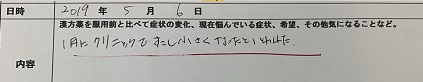 日時 2019 年 5 月 6 日
漢方薬を服用前と比べて症状の変化、現在悩んでいる症状、希望、その他気になることなど。
1月にクリニックですこし小さくなったといわれた。
内容